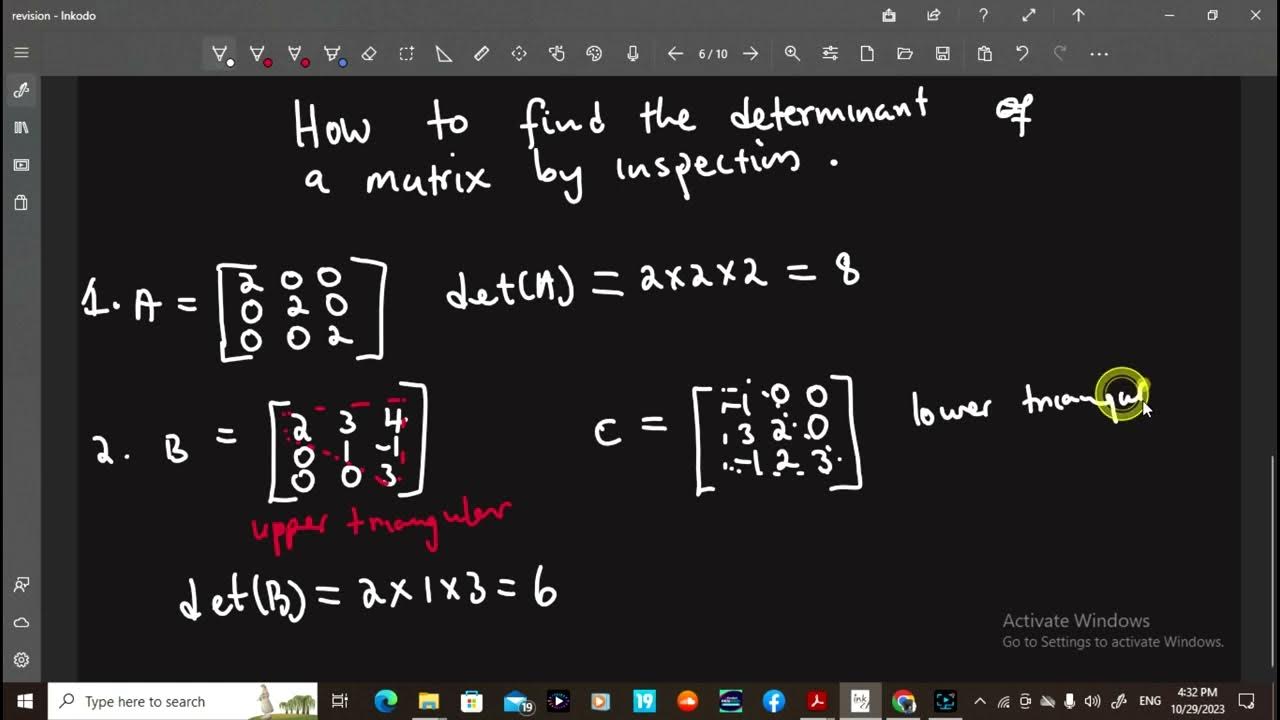 revision - Inkodo
6 / 10
How to find the determinant of
a matrix by inspection.
1. A = [2 0 0
0 2 0
0 0 2]
det(A) = 2×2×2 = 8
2. B = [2 3 4
0 1 -1
0 0 3]
upper triangular
C = [-1 0 0
3 2 0
-1 2 3]
lower triangul
det(B) = 2×1×3 = 6
Activate Windows
Go to Settings to activate Windows.
Type here to search
19
19
ink
ENG
4:32 PM
10/29/2023